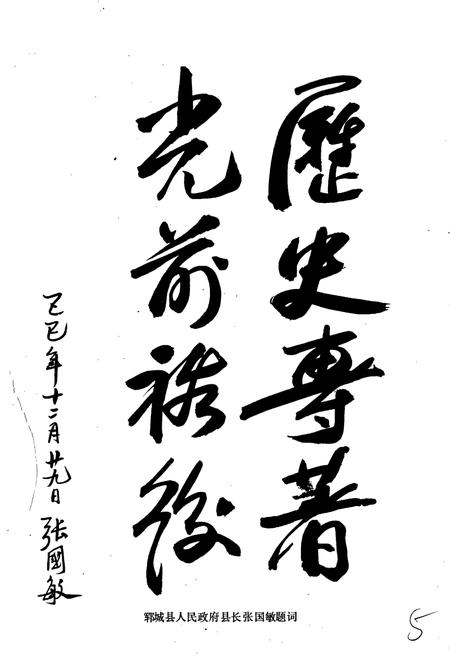 歷史專著
光前裕後
己巳年十二月廿九日 张國敏
郓城县人民政府县长张国敏题词
5